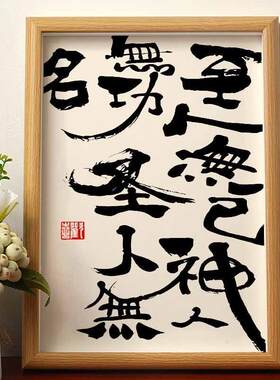 至人無己神人
無功圣人無
名